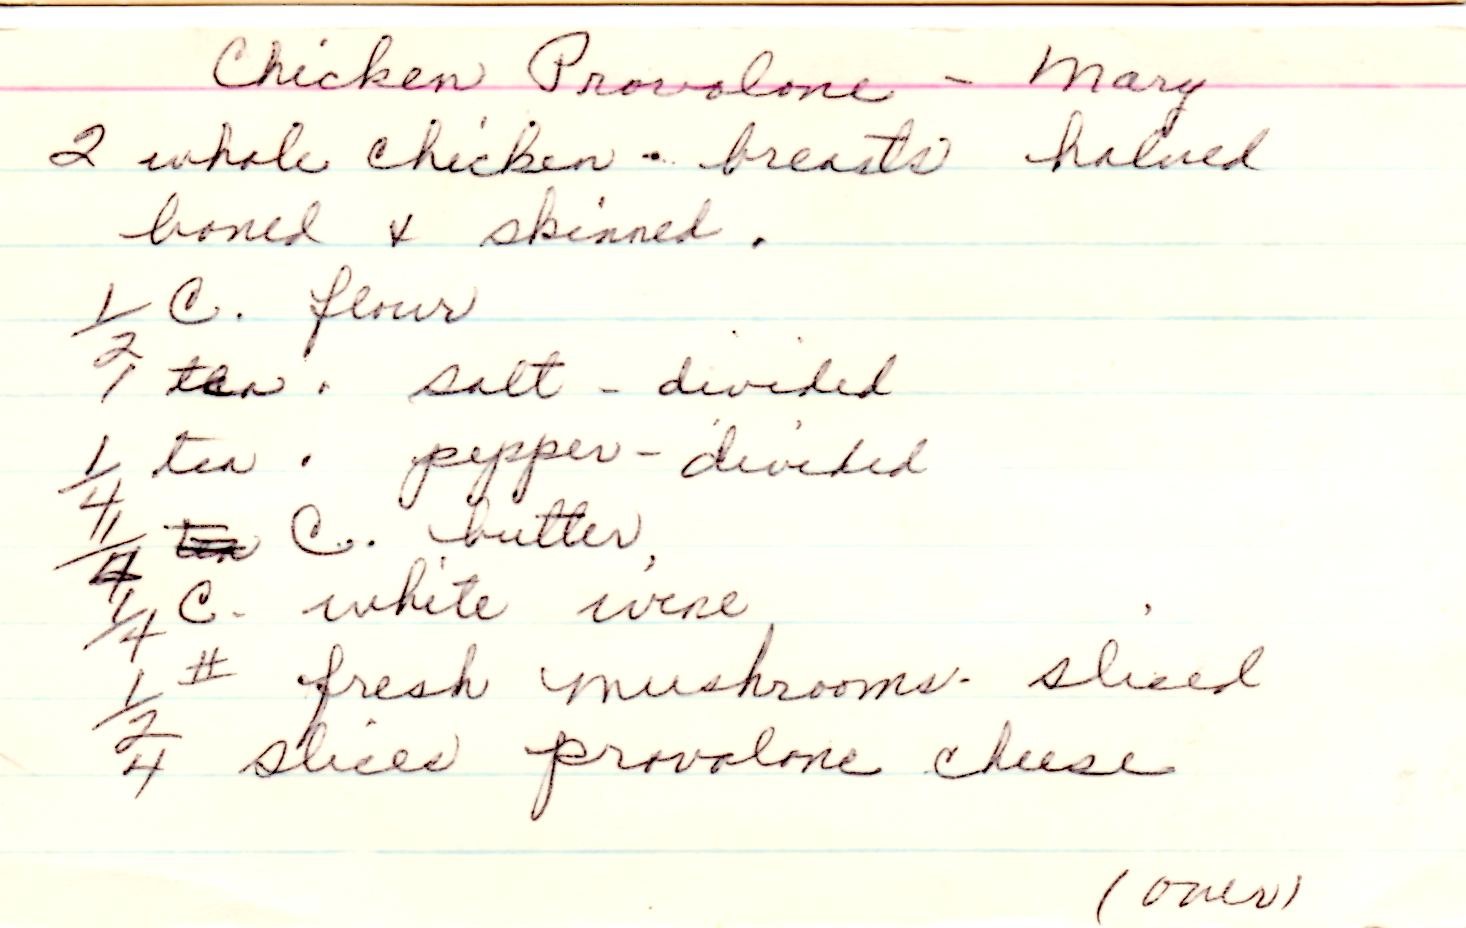 Chicken Provolone - Mary
2 whole chicken - breasts halved
boned & skinned.
1/2 C. flour
1 tea. salt - divided
1/4 tea. pepper - divided
1/4 C. butter
1/4 C. white wine
1/2 # fresh mushrooms - sliced
4 slices provolone cheese
(over)